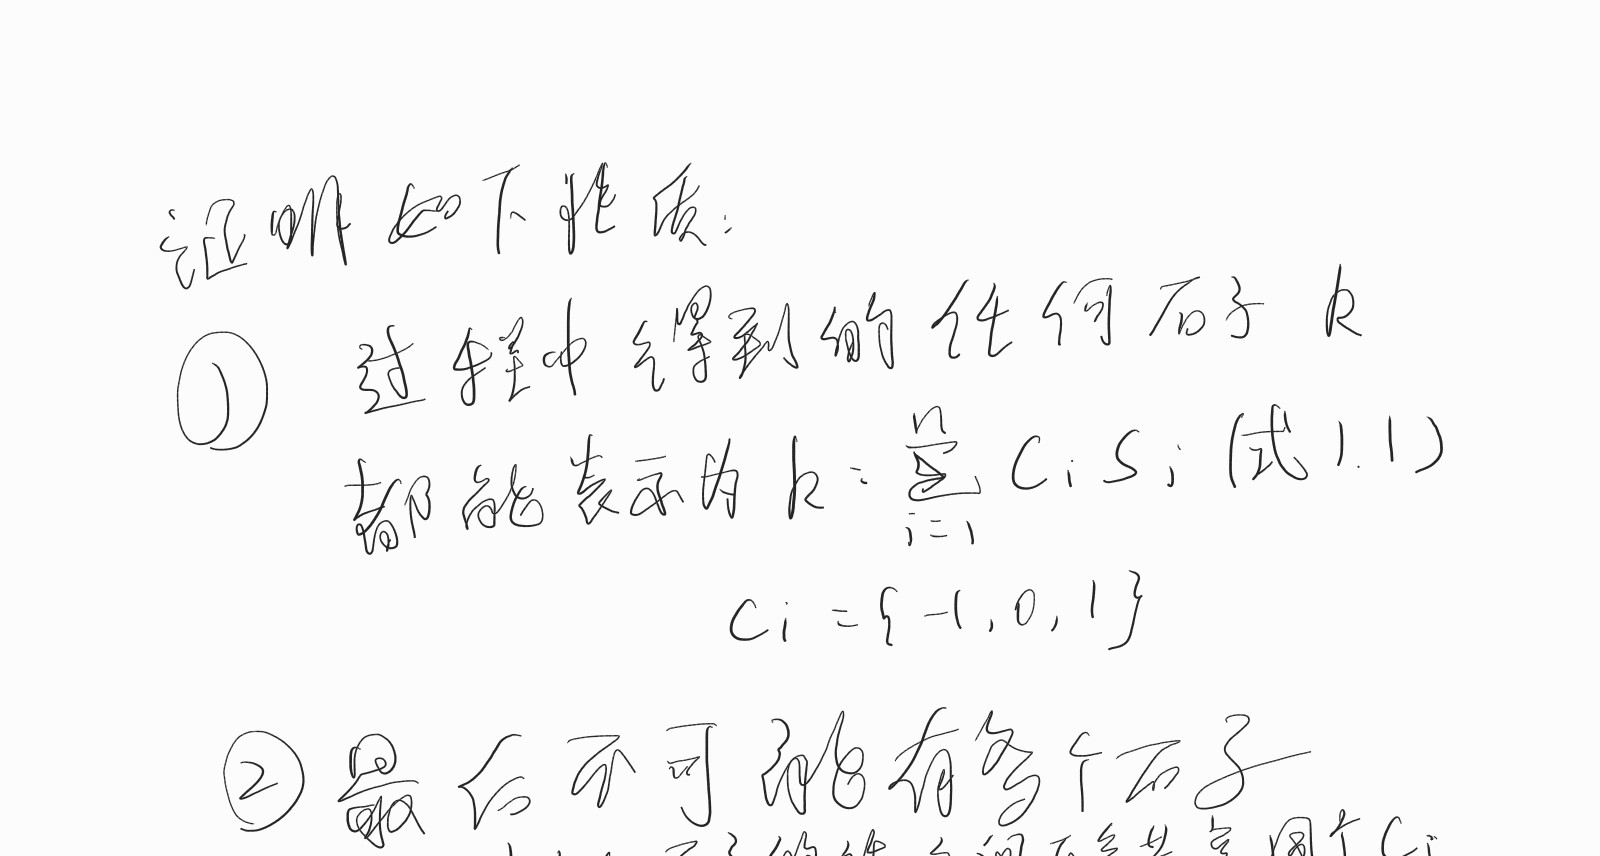 证明如下性质:
① 过程中得到的任何石子 k
都能表示为 k = \sum_{i=1}^{n} C_i S_i (式 1.1)
C_i = {-1, 0, 1}
② 最后不可能有多个石子